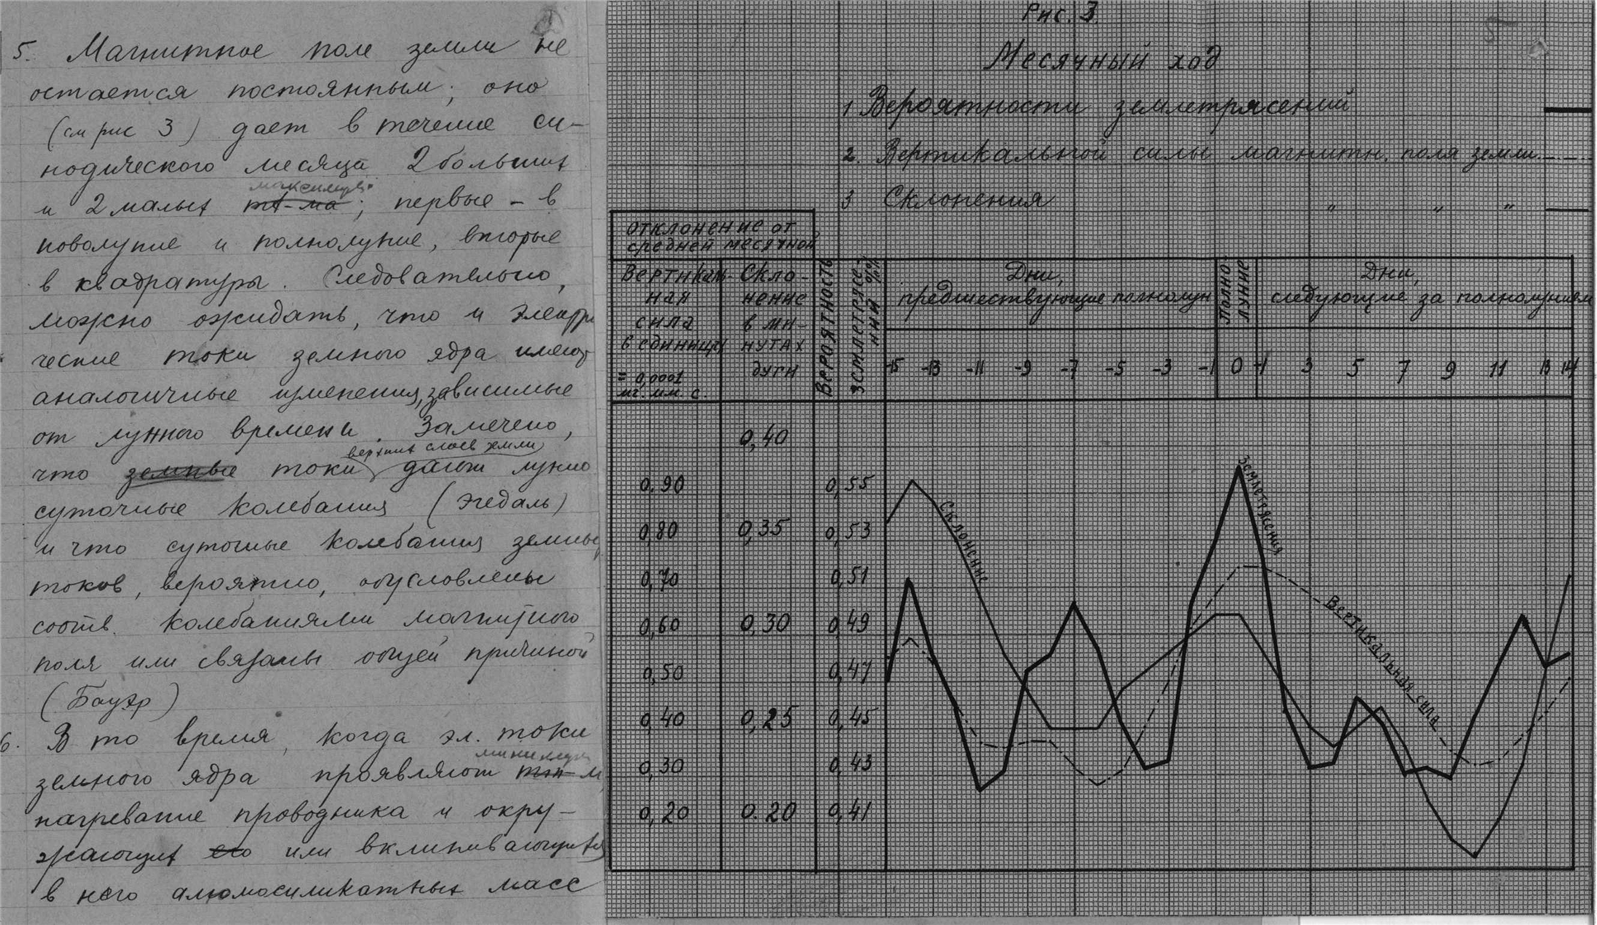 5. Магнитное поле земли не
остается постоянным; оно
(см рис 3) дает в течение си-
нодического месяца 2 больших
максимума
и 2 малых ; первые - в
новолуние и полнолуние, вторые
в квадратуры. Следовательно,
можно ожидать, что и электри
ческие токи земного ядра имеют
аналогичные изменения, зависимые
от лунного времени. Замечено,
верхних слоев земли
что земные токи дают лунно
суточные колебания (Эгедаль)
и что суточные колебания земных
токов, вероятно, обусловлены
соотв. колебаниями магнитного
поля или связаны общей причиной
(Бауэр)
6. В то время, когда эл. токи
минимум
земного ядра проявляют
нагревание проводника и окру-
жающих его или вклинивающихся
в него алюмосиликатных масс
Рис. 3.
Месячный ход
1 Вероятности землетрясений
2. Вертикальной силы магнитн. поля земли
3 Склонения " " "
Отклонение от
средней месячной
Вертикаль-
ная
сила
в единицах
= 0,0001
Скло-
нение
в ми-
нутах
дуги
Вероятность
землетрясе-
ний %%
Дни,
предшествующие полнолун
Полно-
луние
Дни,
следующие за полнолунием
-15 -13 -11 -9 -7 -5 -3 -1 0 1 3 5 7 9 11 13 14
0,40
0,90 0,55
0,80 0,35 0,53
0,70 0,51
0,60 0,30 0,49
0,50 0,47
0,40 0,25 0,45
0,30 0,43
0,20 0.20 0,41
Склонение
Землетрясения
Вертикальная сила